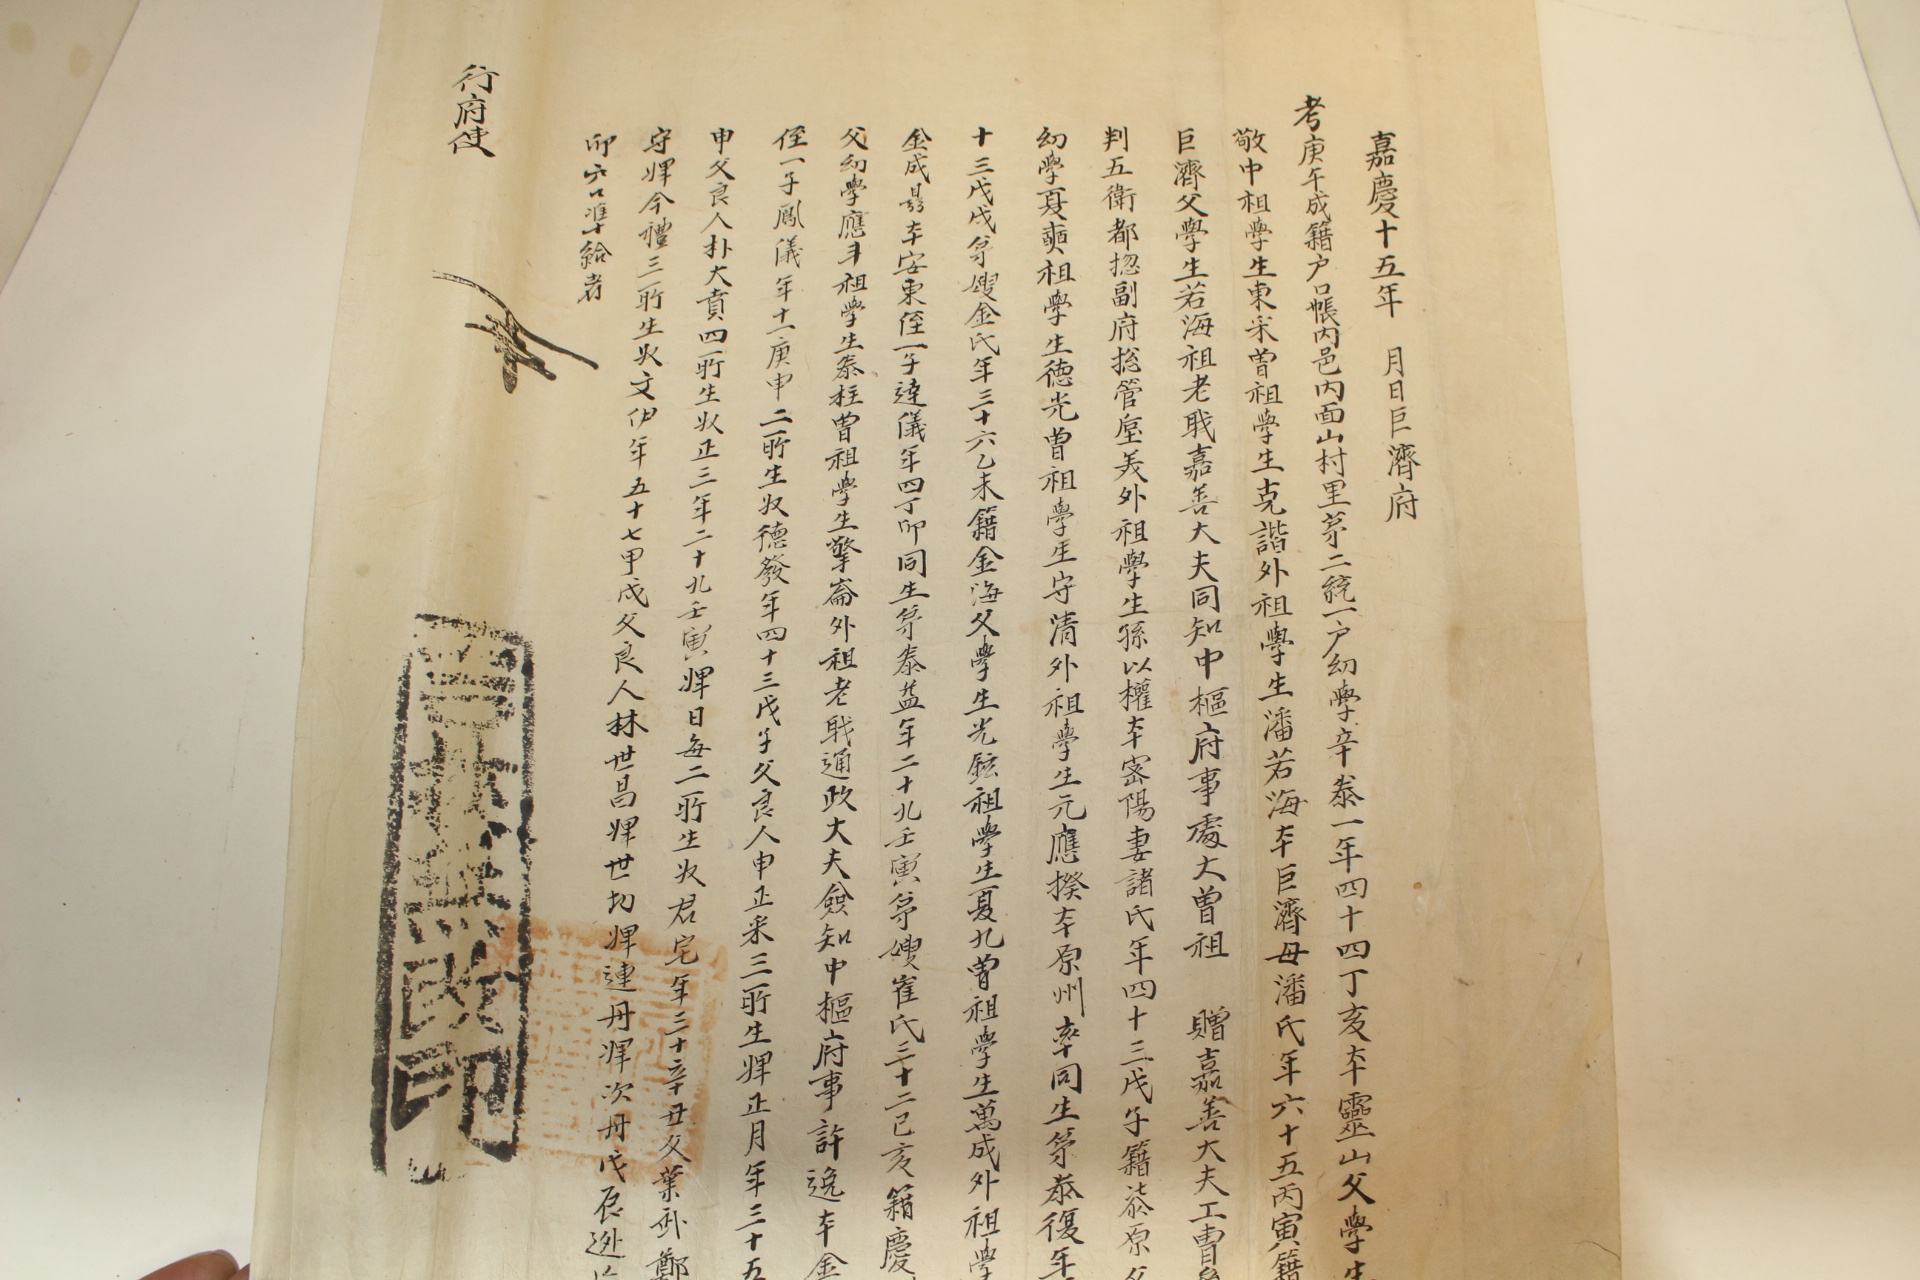 嘉慶十五年 月日巨濟府
考庚午成籍戶口帳內邑內面山村里第二統一戶幼學辛泰一年四十四丁亥本靈山父學生
敬中祖學生東采曾祖學生克諧外祖學生潘若海本巨濟母潘氏年六十五丙寅籍
巨濟父學生若海祖老職嘉善大夫同知中樞府事處大曾祖 贈嘉善大夫工曹參
判五衛都摠副府摠管屋美外祖學生孫以權本密陽妻諸氏年四十三戊子籍柒原父
幼學夏奭祖學生德光曾祖學生守清外祖學生元應揆本原州率同生弟泰復年
十三戊戌弟嫂金氏年三十六乙未籍金海父學生光鉉祖學生夏九曾祖學生萬成外祖學
金成 本安東侄一子達儀年四丁卯同生弟泰益年二十九壬寅弟嫂崔氏三十二己亥籍慶
父幼學應斗祖學生泰柱曾祖學生擎崙外祖老職通政大夫僉知中樞府事許逸本金
侄一子鳳儀年十一庚申二所生奴德發年四十三戊子父良人申正采三所生婢正月年三十五
申父良人朴大賁四所生奴正三年二十九壬寅婢日每二所生奴君宅年三十辛丑父葉 鄭
守婢今禮三所生奴文伊年五十七甲戌父良人林世昌婢世切婢連丹婢次丹戊辰逃
卯六口準給者
行府使
改印